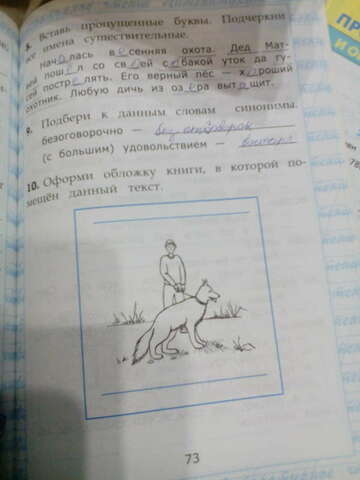 8. Вставь пропущенные буквы. Подчеркни
все имена существительные.
Началась весенняя охота. Дед Мат-
вей пошёл со своей собакой уток да гу-
сей пострелять. Его верный пёс — хороший
охотник. Любую дичь из озера вытащит.
9. Подбери к данным словам синонимы.
безоговорочно — без оговорок
(с большим) удовольствием —
10. Оформи обложку книги, в которой по-
мещён данный текст.
73